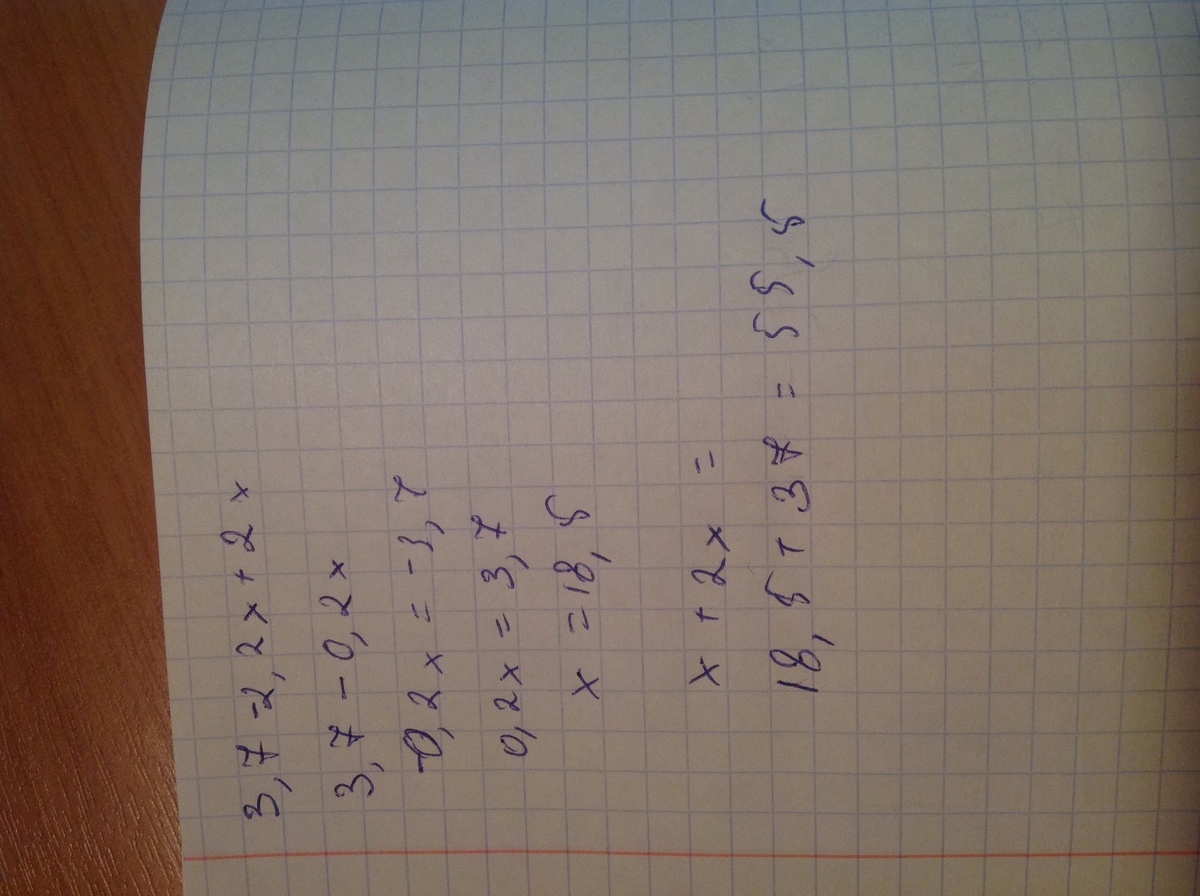 3,7-2,2x+2x
3,7-0,2x
-0,2x=-3,7
0,2x=3,7
x=18,5
x+2x=
18,5+37=55,5